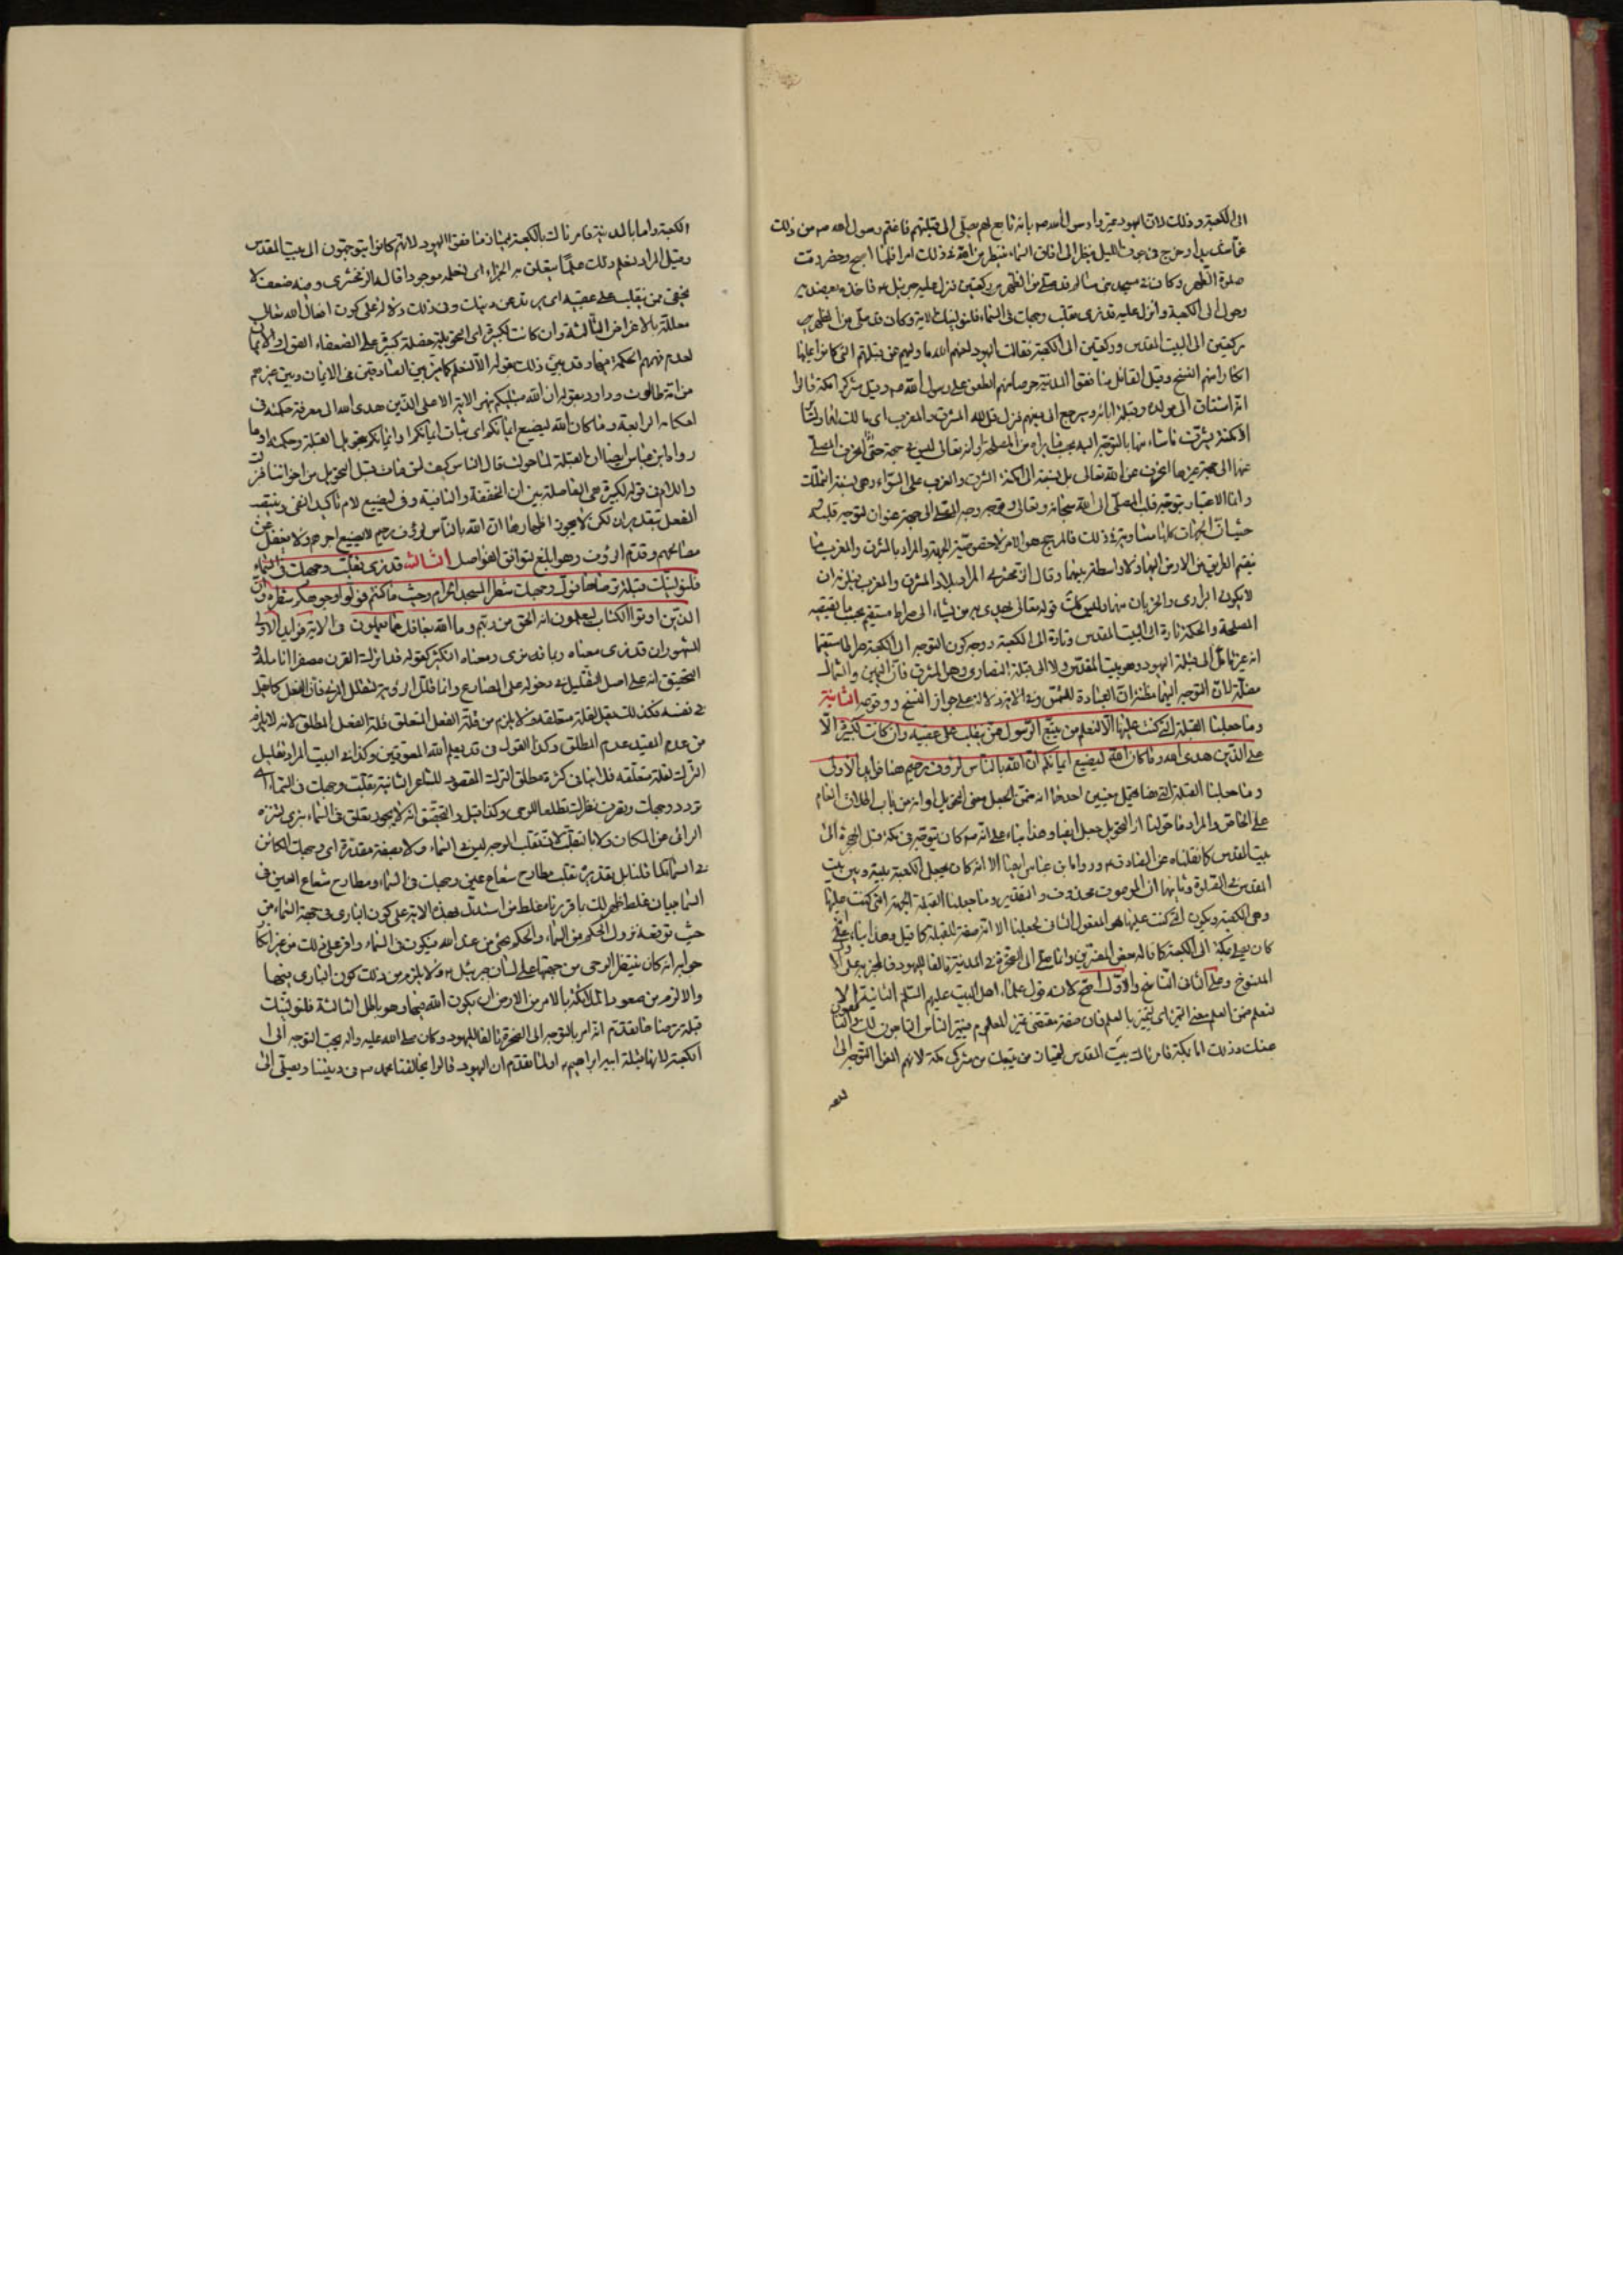 الى الكعبة وذلك لان اليهود عيّروا رسول الله صم بانه تابع لهم يصلّى الى قبلتهم فاغتم رسول الله صم من ذلك
غما شديدا وخرج فى جوف الليل ينظر الى افاق السّماء ينتظر من الله فى ذلك امرا فلمّا اصبح وحضر وقت
صلوة الظّهر وكان فى مسجد بنى سالم قد صلّى من الظّهر ركعتين فنزل عليه جبرئيل فاخذ بعضديه
وحوله الى الكعبة وانزل عليه قد نرى تقلّب وجهك فى السّماء فلنولينّك الاية وكان قد صلّى من الظهر
ركعتين الى البيت المقدس وركعتين الى الكعبة فقالت اليهود لعنهم الله ما وليهم عن قبلتهم الّتى كانوا عليها
انكارا منهم النسخ وقيل القائل منافقوا المدينة حرصا منهم الطعن على رسول الله صم وقيل مشركوا مكة قالوا
انه اشتاق الى مولده وقبلة ابائه وسيرجع الى دينهم فنزل قل لله المشرق والمغرب اى مالك لها
الامكنة يشرّف ماشاء منها بالتوجّه اليه بحسب ما يراه من المصلحة وانه تعالى ليس فى جهة حتّى المصلّى
عنها الى جهة غيرها عن الله تعالى بل نسبة الامكنة الشرق والغرب على السّواء وهى نسبة التملّك
وانما الاعتبار بتوجّه قلب المصلّى الى الله سبحانه وتعالى وتوجه وجه المصلّى الى جهة عنوان لتوجه قلبه
الجهات كلها متساوية فى ذلك فالمرجح هو الامر لا خصوصيّة الجهة والمراد بالمشرق والمغرب ما
يقتم الطرفين من الارض اليها ولا واسطة بينهما وقال الزمخشرى المراد بلاد المشرق والمغرب
لايكون البرارى والجزيان منها وليس كذلك قوله تعالى يهدى به من يشاء الى صراط مستقيم بحسب ما يقتضيه
المصلحة والحكمة تارة الى البيت المقدس وتارة الى الكعبة ووجه كون التوجه الى الكعبة صراطا مستقيما
انه غير مايل الى قبلة اليهود وهو بيت المقدس ولا الى قبلة النصارى وهى المشرق فان اليمين والشمال
مضلّة لان التوجه اليهما مظنة ان العبادة للشمس وفى الاية دلالة على جواز النسخ ووقوعه الثانية
وما جعلنا القبلة الّتى كنت عليها الّا لنعلم من يتّبع الرّسول ممّن ينقلب على عقبيه وان كانت لكبيرة الّا
على الّذين هدى الله وما كان الله ليضيع ايمانكم ان الله بالنّاس لرؤف رحيم هنا فوايد الاولى
وما جعلنا القبلة الّتى هنا يحتمل معنيين احدهما انه ضمّن الجعل معنى التحويل او انه من باب اطلاق العام
على الخاص والمراد ما حوّلنا اذ التحويل جعل ايضا وهذا بناء على انه صم كان يتوجّه فى مكة قبل الهجرة الى
بيت المقدس كما نقلناه عن الصادق عم ورواه ابن عباس ايضا الا انه كان يجعل الكعبة بينه وبين بيت
المقدس فى الصّلوة وثانيهما ان الموصوف محذوف والتقدير وما جعلنا القبلة الجهة التى كنت عليها
وهى الكعبة ويكون الّتى كنت عليها هو المفعول الثانى لجعلنا لا انه صفة للقبلة كما قيل وهذا بناء على
كان يصلّى بمكة الى الكعبة كما قاله بعض المفسّرين وانما صلّى الى الصّخرة فى المدينة تألفا لليهود فالخبر على الاول
المنسوخ وعلى الثانى الناسخ والاوّل اصح لانه قول علماء اهل البيت عليهم السّلم الثانية الا
لنعلم ضمّن العلم معنى التميز اى ليتميز بالعلم فان صفة تقتضى تميّز المعلوم فيتميّز الناس التابعون لك
عنك وذلك اما بمكة فامرناك ببيت المقدس ليتميّز من يتّبعك من مشركى مكة لانهم الفوا التوجه الى
الكعبة واما بالمدينة فامرناك بالكعبة ليمتاز منافقوا اليهود لانهم كانوا يتوجهون الى بيت المقدس
وقيل المراد لنعلم ذلك علمًا يتعلق به الجزاء اى نعلمه موجودا قاله الزمخشرى وفيه ضعف لا
يخفى ممن ينقلب على عقبيه اى يرتد عن دينك وفى ذلك دلالة على كون افعال الله تعالى
معللة بالاغراض الثالثة وان كانت لكبيرة اى التحويلة خصلة كبيرة على الضعفاء العقول والايمان
لعدم فهمهم الحكمة فيها وقد بيّن ذلك بقوله الّا لنعلم كما يميّز بين الصّادقين فى الايمان وبين غيرهم
من امة طالوت وداود بقوله ان الله مبتليكم بنهر الاية الا على الذين هدى الله الى معرفة حكمته فى
احكامه الرابعة وما كان الله ليضيع ايمانكم اى ثبات ايمانكم او ايمانكم بتحويل القبلة وحكمته او ما
رواه ابن عباس ايضا ان القبلة لمّا حولت قال الناس كيف لمن مات قبل التحويل من اخواننا فنزلت
واللام فى قوله لكبيرة هى الفاصلة بين ان المخففة والنافية وفى ليضيع لام تأكيد النفى وينتصب
الفعل بتقدير ان لكن لا يجوز اظهارها ان الله بالناس لرؤف رحيم لا يضيع اجرهم ولا يغفل عن
مصالحهم وقدم الرؤف وهو ابلغ لتوافق الفواصل الثالثة قد نرى تقلّب وجهك فى السّماء
فلنولينّك قبلة ترضاها فولّ وجهك شطر المسجد الحرام وحيث ما كنتم فولوا وجوهكم شطره وانّ
الذين اوتوا الكتاب ليعلمون انه الحق من ربهم وما الله بغافل عما يعملون فى الاية فوايد الاولى
المشهور ان قد نرى معناه ربما قد نرى ومعناه التكثير كقوله قد اترك القرن مصفرا انامله و
التحقيق انه على اصل التقليل فى دخوله على المضارع وانما قلل الرؤية لتقليل المرئى فان الفعل كما يقل
فى نفسه فكذلك يقل لقلة متعلقه ولا يلزم من قلة الفعل المتعلق قلة الفعل المطلق لانه لا يلزم
من عدم المقيد عدم المطلق وكذا القول فى قد يعلم الله المعوقين وكذا فى البيت المراد تقليل
الترك لقلة متعلقه فلا ينافى كثرة مطلق الترك المقصود للشاعر الثانية تقلّب وجهك فى السّماء اى
تردد وجهك وتصرف نظرك تطلعا للوحى وكذا قيل والتحقيق انه لا يجوز تعلق فى السّماء بنرى لتنزه
الرائى عن المكان ولا بالتقلّب لان تقلّب الوجه ليس فى السّماء ولا بصفة مقدّرة اى وجهك الكائن
فى السّماء لما قلنا بل تقديره تقلب مطارح شعاع عينى وجهك فى السّماء ومطارح شعاع العين فى
السّماء بيان غلط ظهر لك بما قررناه غلط من استدلّ بهذه الاية على كون البارى فى جهة السّماء من
حيث توقعه نزول الحكم من السّماء والحكم يجئى من عند الله فيكون فى السّماء
جوابه انه كان ينتظر الوحى من جهتها على لسان جبرئيل ولا يلزم من ذلك كون البارى فيها
والا لزم من صعود الملائكة بالامر من الارض ان يكون الله فيها وهو باطل الثالثة فلنولينّك
قبلة ترضاها تقدّم انه امر بالتوجه الى الصخرة تألفا لليهود وكان صلى الله عليه واله يحب التوجه الى
الكعبة لانها قبلة ابيه ابراهيم او لما تقدم ان اليهود قالوا يخالفنا محمد صم فى ديننا ويصلّى الى